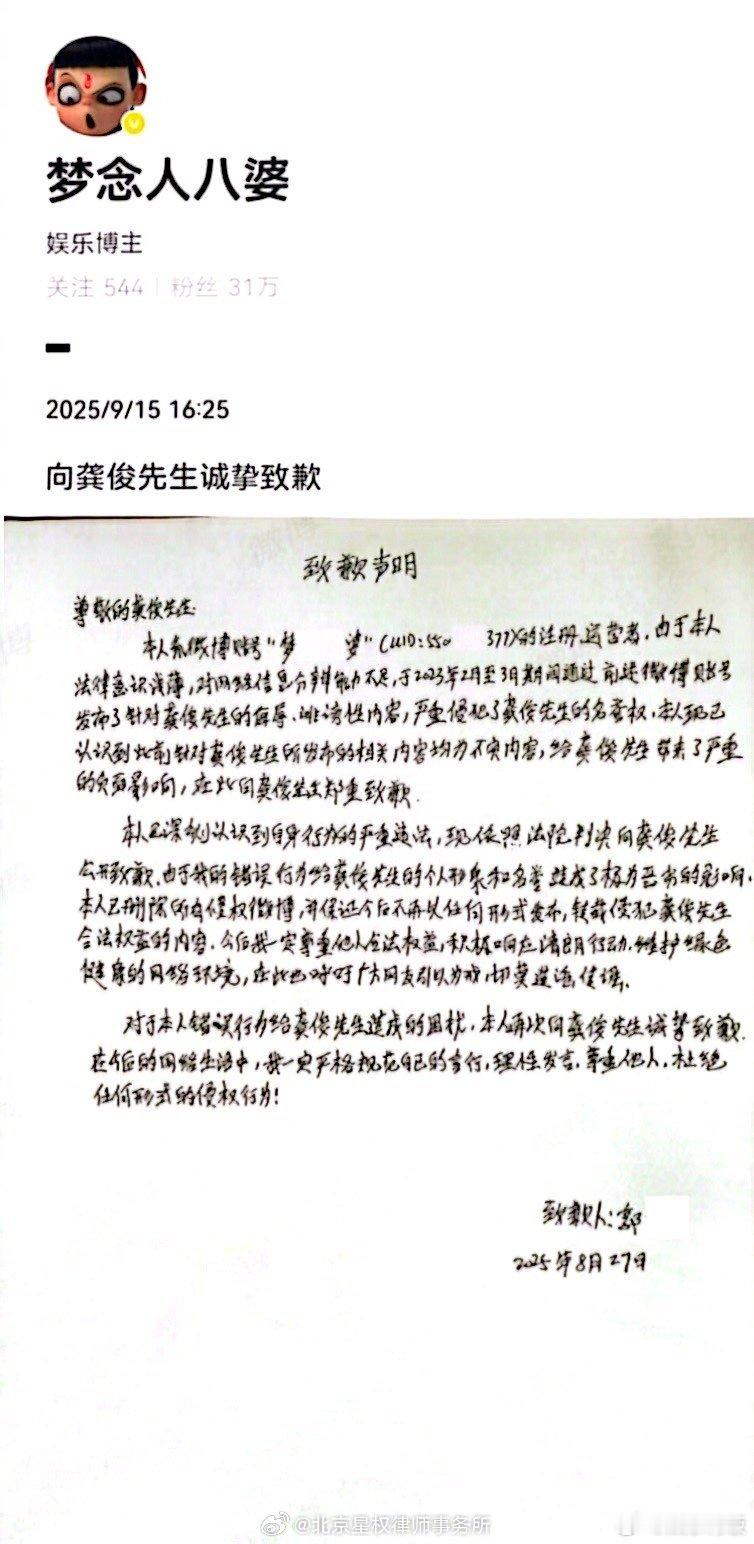 梦念人八婆
娱乐博主
关注 544 | 粉丝 31万
2025/9/15 16:25
向龚俊先生诚挚致歉
致歉声明
尊敬的龚俊先生:
本人系微博账号"梦 婆"(UID:550 377)的注册、运营者,由于本人
法律意识浅薄,对网络信息分辨能力不足,于2023年2月至3月期间通过前述微博账号
发布了针对龚俊先生的侮辱、诽谤性内容,严重侵犯了龚俊先生的名誉权,本人现已
认识到此前针对龚俊先生所发布的相关内容均为不实内容,给龚俊先生带来了严重
的负面影响,在此向龚俊先生郑重致歉.
本人已深刻认识到自身行为的严重违法,现依照法院判决向龚俊先生
公开致歉.由于我的错误行为给龚俊先生的个人形象和名誉造成了极为恶劣的影响.
本人已删除所有侵权微博,并保证今后不再以任何形式发布,转载侵犯龚俊先生
合法权益的内容.今后我一定尊重他人合法权益,积极响应清朗行动.维护绿色
健康的网络环境,在此也呼吁广大网友引以为戒,切莫造谣传谣.
对于本人错误行为给龚俊先生造成的困扰,本人再次向龚俊先生诚挚致歉.
在今后的网络生活中,我一定严格规范自己的言行,理性发言,尊重他人,杜绝
任何形式的侵权行为!
致歉人:郭
2025年8月27日
@北京星权律师事务所